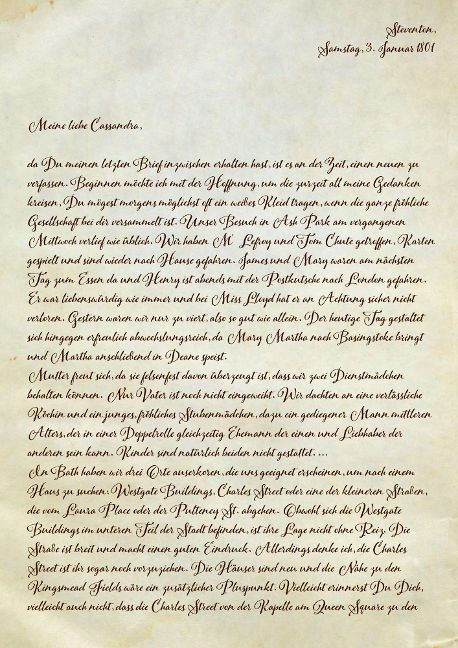 Steventon,
Samstag, 3. Januar 1801
Meine liebe Cassandra,
da Du meinen letzten Brief inzwischen erhalten hast, ist es an der Zeit, einen neuen zu
verfassen. Beginnen möchte ich mit der Hoffnung, um die zurzeit all meine Gedanken
kreisen, Du mögest morgens möglichst oft ein weißes Kleid tragen, wenn die ganze fröhliche
Gesellschaft bei dir versammelt ist. Unser Besuch in Ash Park am vergangenen
Mittwoch verlief wie üblich. Wir haben M. Lefroy und Tom Chute getroffen, Karten
gespielt und sind wieder nach Hause gefahren. James und Mary waren am nächsten
Tag zum Essen da und Henry ist abends mit der Postkutsche nach London gefahren.
Er war liebenswürdig wie immer und bei Miss Lloyd hat er an Achtung sicher nicht
verloren. Gestern waren wir nur zu viert, also so gut wie allein. Der heutige Tag gestaltet
sich hingegen erfreulich abwechslungsreich, da Mary Martha nach Basingstoke bringt
und Martha anschließend in Deane speist.
Mutter freut sich, da sie felsenfest davon überzeugt ist, dass wir zwei Dienstmädchen
behalten können. Nur Vater ist noch nicht eingeweiht. Wir dachten an eine verlässliche
Köchin und ein junges, fröhliches Stubenmädchen, dazu ein gediegener Mann mittleren
Alters, der in einer Doppelrolle gleichzeitig Ehemann der einen und Liebhaber der
anderen sein kann. Kinder sind natürlich beiden nicht gestattet. ...
In Bath haben wir drei Orte auserkoren, die uns geeignet erscheinen, um nach einem
Haus zu suchen: Westgate Buildings, Charles Street oder eine der kleineren Straßen,
die vom Laura Place oder der Pulteney St. abgehen. Obwohl sich die Westgate
Buildings im unteren Teil der Stadt befinden, ist ihre Lage nicht ohne Reiz. Die
Straße ist breit und macht einen guten Eindruck. Allerdings denke ich, die Charles
Street ist ihr sogar noch vorzuziehen. Die Häuser sind neu und die Nähe zu den
Kingsmead Fields wäre ein zusätzlicher Pluspunkt. Vielleicht erinnerst Du Dich,
vielleicht auch nicht, dass die Charles Street von der Kapelle am Queen Square zu den